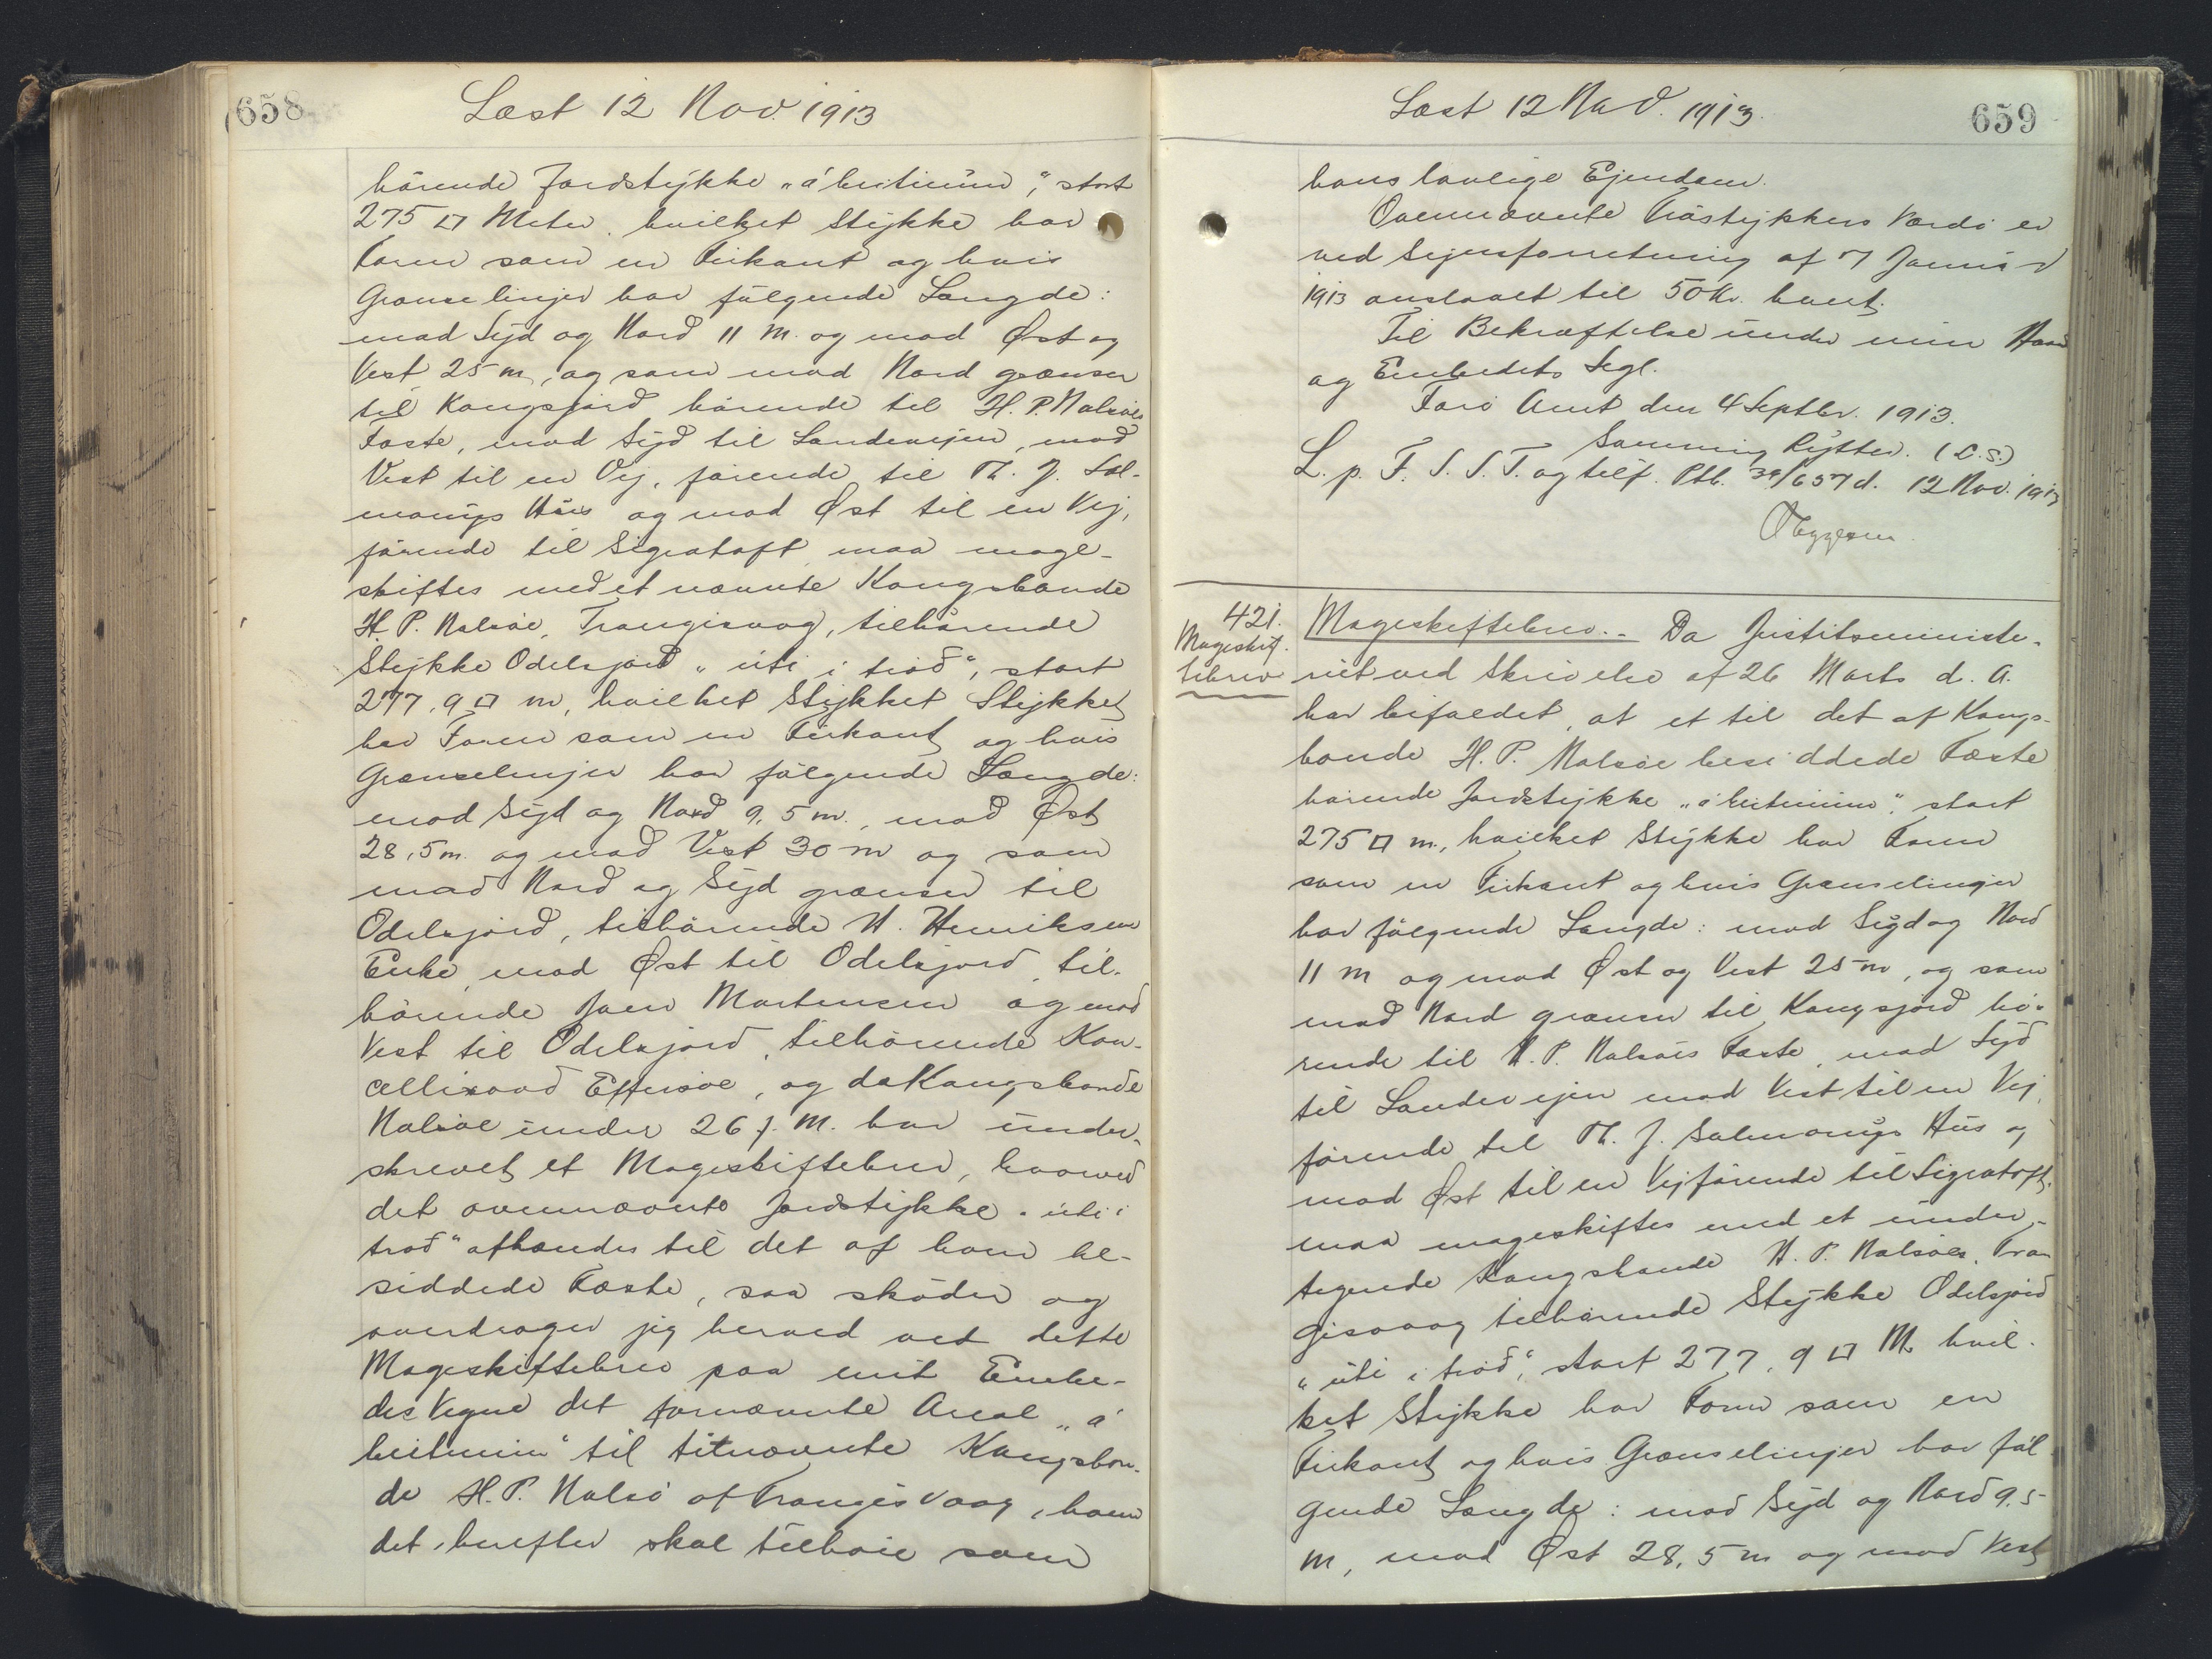 658
Læst 12 Nov. 1913
hørende Jordstykke „á beitinum“, stort
275 □ Meter, hvilket Stykke har
Form som en Firkant og hvis
Grænselinjer har følgende Længde:
mod Syd og Nord 11 m. og mod Øst og
Vest 25 m, og som mod Nord grænser
til Kongsjord hørende til H. P. Nalsøes
Fæste, mod Syd til Landevejen, mod
Vest til en Vej, førende til Th. J. Sal-
mongs Hus og mod Øst til en Vej,
førende til Sigratoft maa mage-
skiftes med et nævnte Kongsbonde
H. P. Nalsøe, Trangisvog, tilhørende
Stykke Odelsjord „úti í trøð“, stort
277,9 □ m, hvilket Stykket Stykket
har Form som en Firkant og hvis
Grænselinjer har følgende Længde:
mod Syd og Nord 9,5 m., mod Øst
28,5 m. og mod Vest 30 m og som
mod Nord og Syd grænser til
Odelsjord, tilhørende H. Henriksens
Enke, mod Øst til Odelsjord til-
hørende Joen Mortensen og mod
Vest til Odelsjord, tilhørende Kan-
celliraad Effersøe, og da Kongsbonde
Nalsøe under 26 f. M. har under-
skrevet et Mageskiftebrev, hvorved
det ovennævnte Jordstykke „úti í
trøð“ afhændes til det af ham be-
siddede Fæste, saa skøder og
overdrager jeg herved ved dette
Mageskiftebrev paa mit Embe-
des Vegne det fornævnte Areal „á
beitinum“ til titnævnte Kongsbon-
de H. P. Nalsø af Trangisvaag, ham
det herefter skal tilhøre som
Læst 12 Nov. 1913.
659
hans lovlige Ejendom.
Ovennævnte Træstykkers Værdi er
ved Synsforretning af 7 Januar
1913 anslaaet til 50 Kr. hvert.
Til Bekræftelse under min Haand
og Embedets Segl.
Færø Amt den 4 Septbr. 1913.
Rytter. (L.S.)
L. p. F. S. S. T. og tilf. Ptb. 39/657 d. 12 Nov. 1913
421.
Mageskif-
tebrev
Mageskiftebrev.- Da Justitsministe-
riet ved Skrivelse af 26 Marts d. A.
har bifaldet, at et til det af Kongs-
bonde H. P. Nalsøe besiddede Fæste
hørende Jordstykke „á beitinum“, stort
275 □ m., hvilket Stykke har Form
som en Firkant og hvis Grænselinjer
har følgende Længde: mod Syd og Nord
11 m og mod Øst og Vest 25 m, og som
mod Nord grænser til Kongsjord hø-
rende til H. P. Nalsøes Fæste, mod Syd
til Landevejen mod Vest til en Vej,
førende til Th. J. Salmongs Hus og
mod Øst til en Vej førende til Sigratoft,
maa mageskiftes med et under-
tegnede Kongsbonde H. P. Nalsøes, Tran-
gisvaag tilhørende Stykke Odelsjord
„úti í trøð“, stort 277,9 □ M. hvil-
ket Stykke har Form som en
Firkant og hvis Grænselinjer har føl
gende Længde: mod Syd og Nord 9,5
m, mod Øst 28,5 m og mod Vest